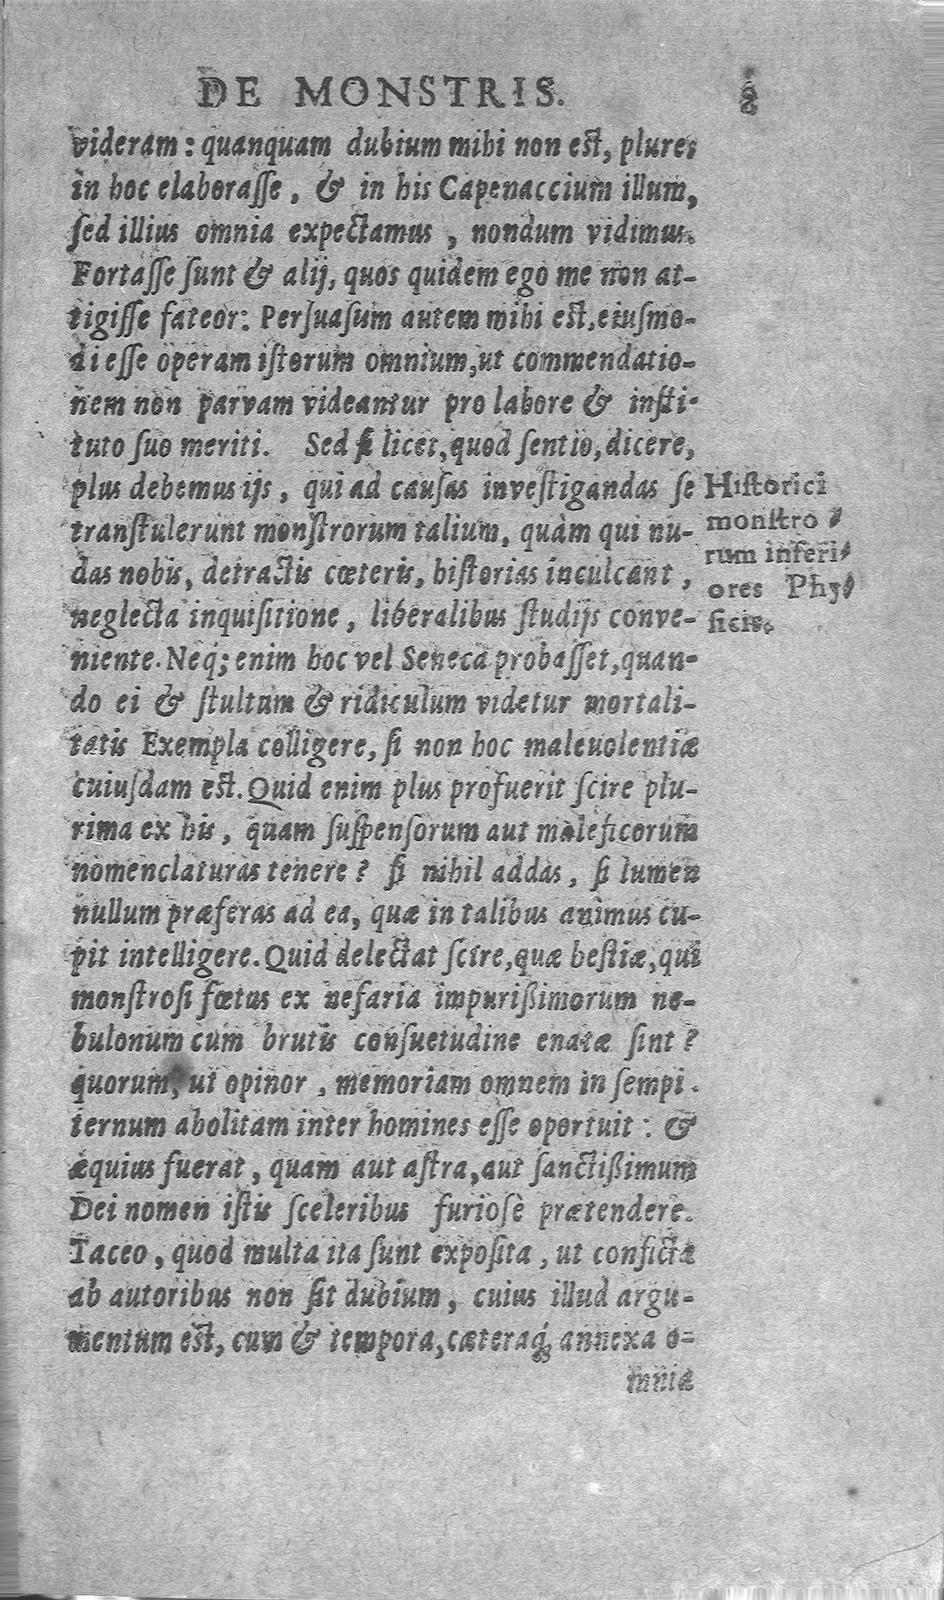 DE MONSTRIS.
videram: quanquam dubium mihi non est, plures
in hoc elaborasse, & in his Capenaccium illum,
sed illius omnia expectamus, nondum vidimus.
Fortasse sunt & alij, quos quidem ego me non at-
tigisse fateor: Persuasum autem mihi est, eiusmo-
di esse operam istorum omnium, ut commendatio-
nem non parvam videantur pro labore & insti-
tuto suo meriti. Sed si licet, quod sentio, dicere,
plus debemus ijs, qui ad causas investigandas se
transtulerunt monstrorum talium, quàm qui nu-
das nobis, detractis cœteris, historias inculcant,
neglecta inquisitione, liberalibus studijs conve-
niente. Neq; enim hoc vel Seneca probasset, quan-
do ei & stultum & ridiculum videtur mortali-
tatis Exempla colligere, si non hoc malevolentiæ
cuiusdam est. Quid enim plus profuerit scire plu-
rima ex his, quam suspensorum aut maleficorum
nomenclaturas tenere? si nihil addas, si lumen
nullum præferas ad ea, quæ in talibus animus cu-
pit intelligere. Quid delectat scire, quæ bestiæ, qui
monstrosi fœtus ex nefaria impurißimorum ne-
bulonum cum brutis consuetudine enatæ sint?
quorum, ut opinor, memoriam omnem in sempi-
ternum abolitam inter homines esse oportuit: &
æquius fuerat, quam aut astra, aut sanctißimum
Dei nomen istis sceleribus furiosè prætendere.
Taceo, quod multa ita sunt exposita, ut conficta
ab autoribus non sit dubium, cuius illud argu-
mentum est, cum & tempora, cæteraq́; annexa o-
mniæ
Historici
monstro
rum inferi
ores Phy
sicis.